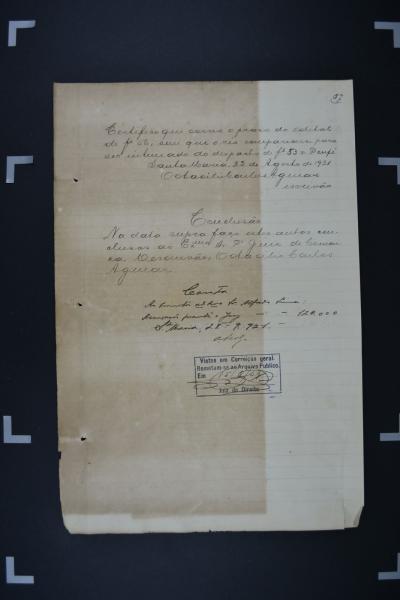 57
Certifico que correu o prazo do edital
de fs 56, sem que o réo comparecesse para
ser intimado do despacho de fs 53 v. Dou fé
Santa Maria, 22 de Agosto de 1921
O Octacilio Carlos Aguiar
escrivão
Conclusão
Na data supra faço estes autos con-
clusos ao Exmo Sr. Dr Juiz de Comar-
ca. O escrivão, Octacilio Carlos
Aguiar
Conta
Ao Dr. Alfredo
120,000
Sta Maria, 28 9. 921.
Vistos em Correição geral.
Remetam-se ao Arquivo Público.
Em
Juiz de Direito